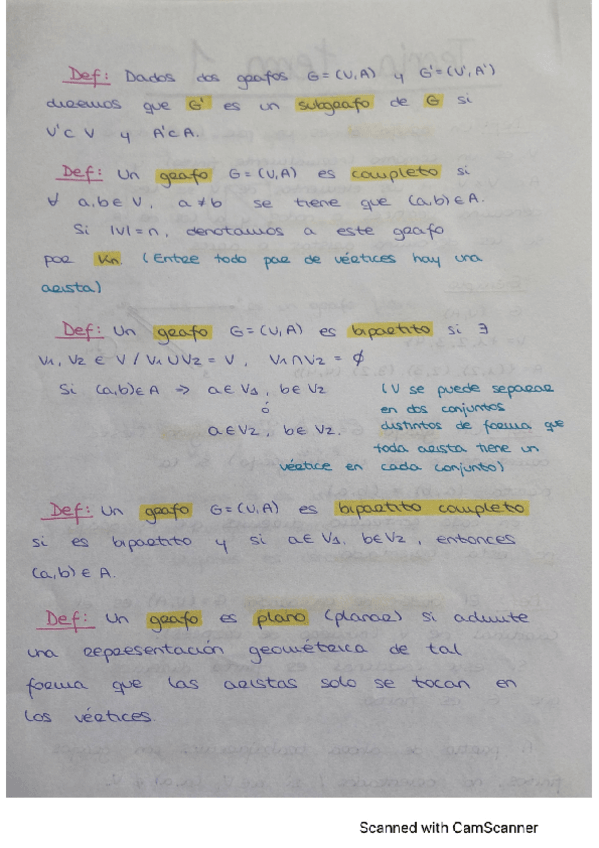 Def: Dados dos grafos G=(V,A) y G'=(V',A')
diremos que G' es un subgrafo de G si
V'⊂ V y A'⊂ A.
Def: Un grafo G=(V,A) es completo si
∀ a,b ∈ V, a ≠ b se tiene que (a,b) ∈ A.
Si |V|=n, denotamos a este grafo
por Kn. (Entre todo par de vértices hay una
arista)
Def: Un grafo G=(V,A) es bipartito si ∃
V1, V2 ∈ V / V1 ∪ V2 = V, V1 ∩ V2 = ∅
Si (a,b) ∈ A => a ∈ V1, b ∈ V2
ó
a ∈ V2, b ∈ V2.
(V se puede separar
en dos conjuntos
distintos de forma que
toda arista tiene un
vértice en cada conjunto)
Def: Un grafo G=(V,A) es bipartito completo
si es bipartito y si a ∈ V1, b ∈ V2, entonces
(a,b) ∈ A.
Def: Un grafo es plano (planar) si admite
una representación geométrica de tal
forma que las aristas solo se tocan en
los vértices.
Scanned with CamScanner